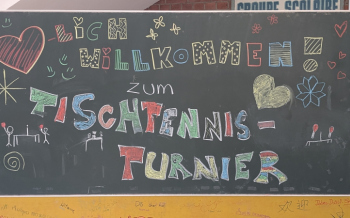 GROUPE SCOLAIRE
♡-LICH
WILLKOMMEN!
zum
TISCHTENNIS-
TURNIER